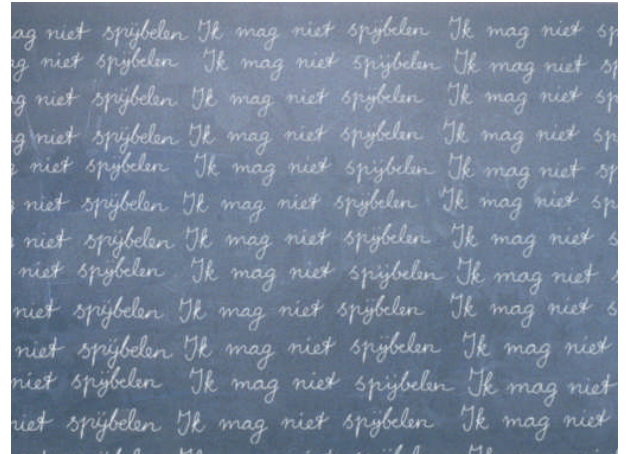 niet spijbelen Ik mag niet spijbelen Ik mag niet
niet spijbelen Ik mag niet spijbelen Ik mag niet
niet spijbelen Ik mag niet spijbelen Ik mag niet
niet spijbelen Ik mag niet spijbelen Ik mag niet
niet spijbelen Ik mag niet spijbelen Ik mag niet
niet spijbelen Ik mag niet spijbelen Ik mag niet
niet spijbelen Ik mag niet spijbelen Ik mag niet
niet spijbelen Ik mag niet spijbelen Ik mag niet
niet spijbelen Ik mag niet spijbelen Ik mag niet
niet spijbelen Ik mag niet spijbelen Ik mag niet
niet spijbelen Ik mag niet spijbelen Ik mag niet
niet spijbelen Ik mag niet spijbelen Ik mag niet